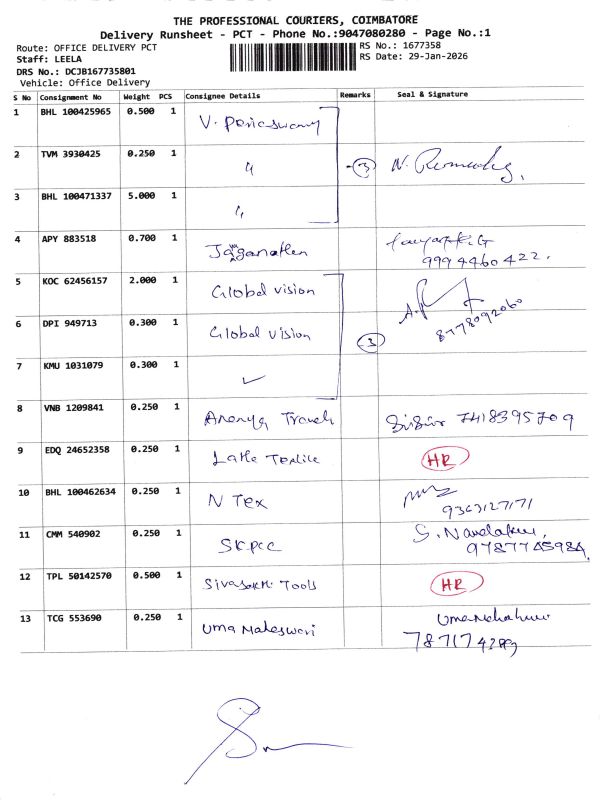 THE PROFESSIONAL COURIERS, COIMBATORE
Delivery Runsheet - PCT - Phone No.:9047080280 - Page No.:1
Route: OFFICE DELIVERY PCT
RS No.: 1677358
Staff: LEELA
RS Date: 29-Jan-2026
DRS No.: DCJB167735801
Vehicle: Office Delivery
S No Consignment No Weight PCS Consignee Details Remarks Seal & Signature
1 BHL 100425965 0.500 1 V. Periaswamy
2 TVM 3930425 0.250 1 〃 -3 N.
3 BHL 100471337 5.000 1 〃
4 APY 883518 0.700 1 Jaganathan
9994460422.
5 KOC 62456157 2.000 1 Global vision
8778092060
6 DPI 949713 0.300 1 Global vision -3
7 KMU 1031079 0.300 1 ✓
8 VNB 1209841 0.250 1 Ananya Travels 7418395709
9 EDQ 24652358 0.250 1 HR
10 BHL 100462634 0.250 1 N Tex
9363127171
11 CMM 540902 0.250 1 SKPCC
12 TPL 50142570 0.500 1 Sivasakthi Tools HR
13 TCG 553690 0.250 1 Uma Maheswari